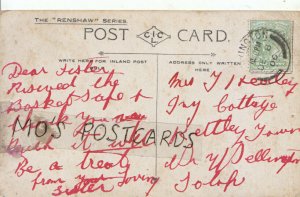 THE "RENSHAW" SERIES.
POST CARD.
WRITE HERE FOR INLAND POST
ADDRESS ONLY TO BE WRITTEN HERE
Dear Sister
recived the
Basket Safe &
thank you
with it will
Be a treat
from your Loving
Sister
Mrs T
Ivy Cottage
Town
Nr Wellington
Salop
MO'S POSTCARDS